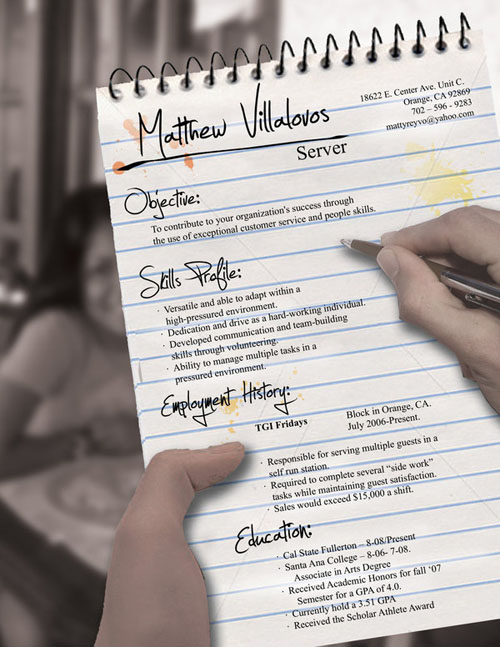 Matthew Villalovos
18622 E. Center Ave. Unit C.
Orange, CA 92869
702 – 596 - 9283
mattyreyvo@yahoo.com
Server
Objective:
To contribute to your organization's success through
the use of exceptional customer service and people skills.
Skills Profile:
· Versatile and able to adapt within a
high-pressured environment.
· Dedication and drive as a hard-working individual.
· Developed communication and team-building
skills through volunteering.
· Ability to manage multiple tasks in a
pressured environment.
Employment History:
TGI Fridays Block in Orange, CA.
July 2006-Present.
· Responsible for serving multiple guests in a
self run station.
· Required to complete several “side work”
tasks while maintaining guest satisfaction.
· Sales would exceed $15,000 a shift.
Education:
· Cal State Fullerton – 8-08/Present
· Santa Ana College – 8-06- 7-08.
Associate in Arts Degree
· Received Academic Honors for fall ‘07
Semester for a GPA of 4.0.
· Currently hold a 3.51 GPA
· Received the Scholar Athlete Award